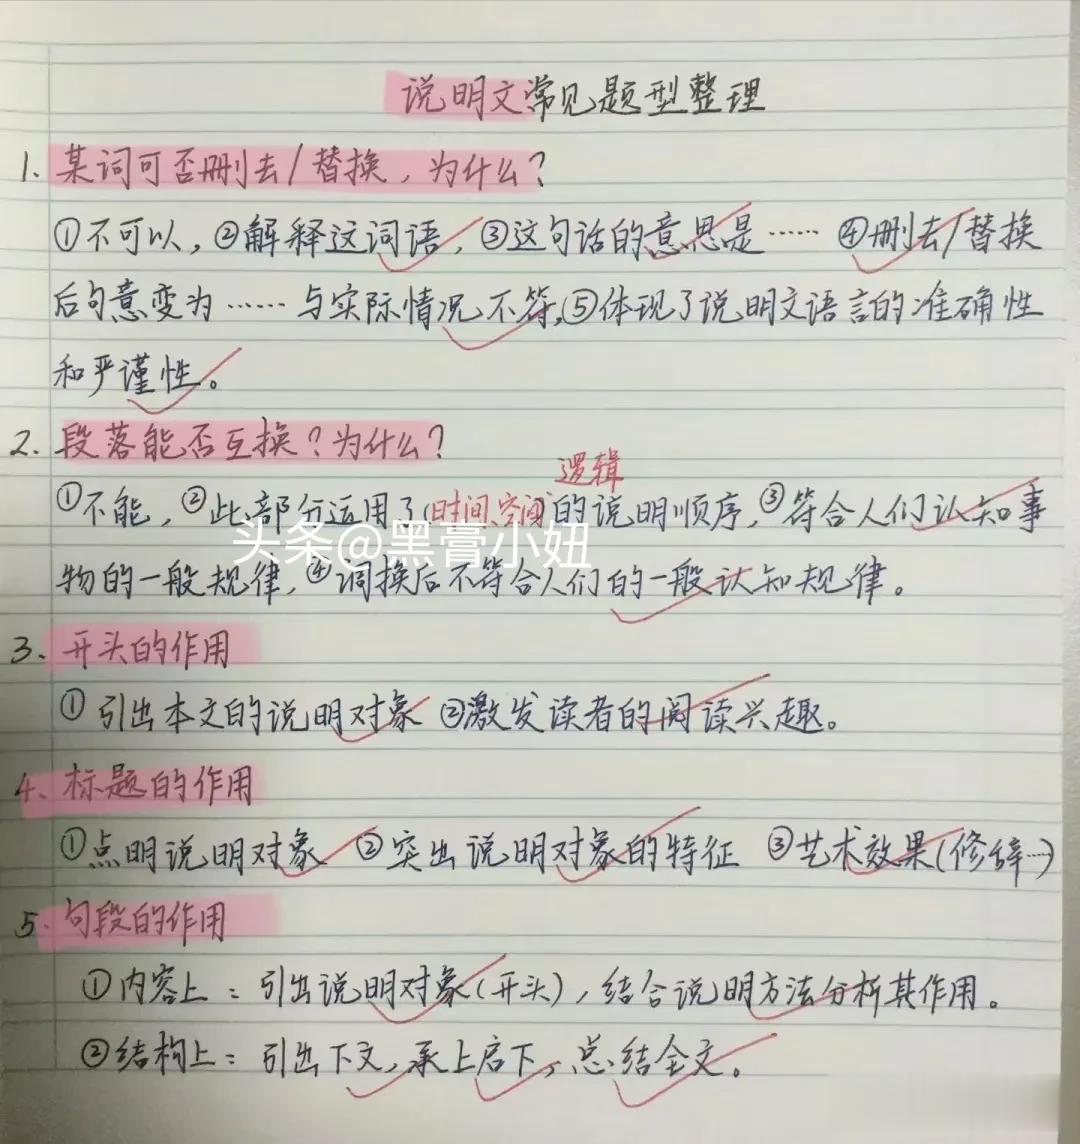 说明文常见题型整理
1. 某词可否删去/替换，为什么？
①不可以，②解释这词语，③这句话的意思是…… ④删去/替换
后句意变为……与实际情况不符，⑤体现了说明文语言的准确性
和严谨性。
2. 段落能否互换？为什么？
逻辑
①不能，②此部分运用了(时间、空间)的说明顺序，③符合人们认知事
头条@黑膏小妞
物的一般规律，④调换后不符合人们的一般认知规律。
3、开头的作用
①引出本文的说明对象 ②激发读者的阅读兴趣。
4、标题的作用
①点明说明对象 ②突出说明对象的特征 ③艺术效果(修辞…)
5、句段的作用
①内容上：引出说明对象(开头)，结合说明方法分析其作用。
②结构上：引出下文，承上启下，总结全文。